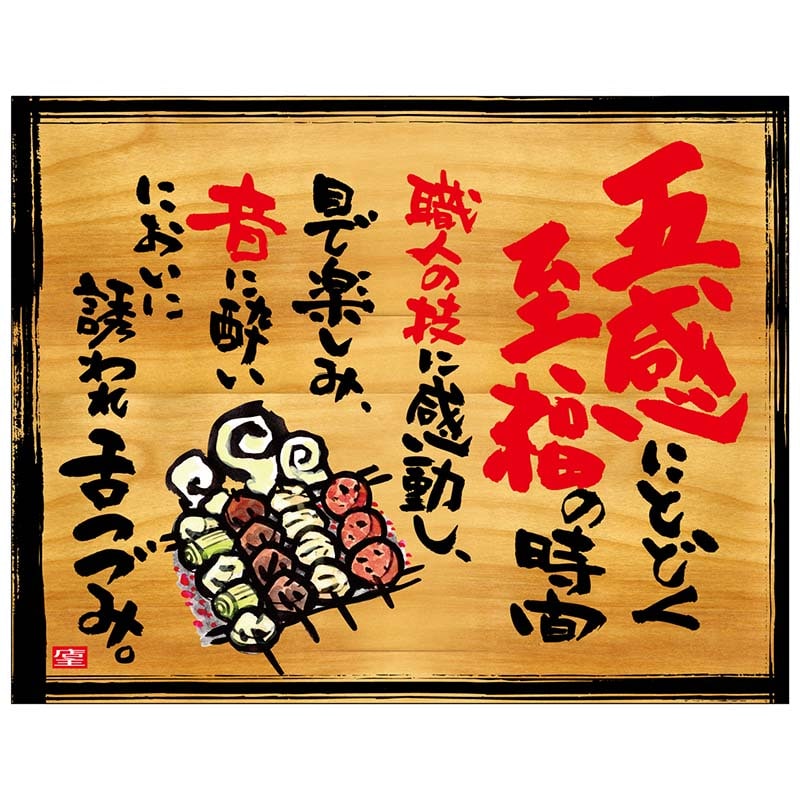 五感にとどく
至福の時間
職人の技に感動し、
目で楽しみ、
音に酔い
においに
誘われ舌つづみ。